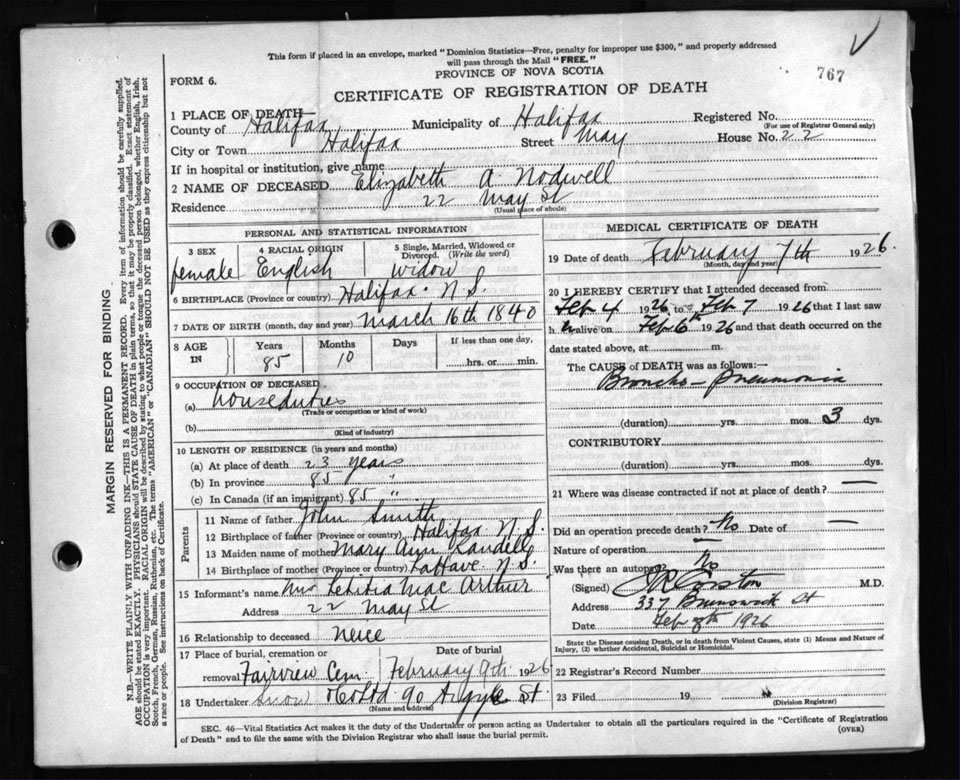 This form if placed in an envelope, marked "Dominion Statistics—Free, penalty for improper use $300," and properly addressed
will pass through the Mail "FREE."
767
PROVINCE OF NOVA SCOTIA
FORM 6.
CERTIFICATE OF REGISTRATION OF DEATH
1 PLACE OF DEATH—
County of Halifax Municipality of Halifax Registered No.
(For use of Registrar General only)
City or Town Halifax Street May House No. 22
If in hospital or institution, give name
2 NAME OF DECEASED Elizabeth A. Nodwell
Residence 22 May St
(Usual place of abode)
PERSONAL AND STATISTICAL INFORMATION
3 SEX 4 RACIAL ORIGIN 5 Single, Married, Widowed or
Divorced. (Write the word)
female English widow
6 BIRTHPLACE (Province or country) Halifax. N.S.
7 DATE OF BIRTH (month, day and year) March 16th 1840
8 AGE IN Years Months Days If less than one day,
85 10 hrs. or min.
9 OCCUPATION OF DECEASED
(a) houseduties
(Trade or occupation or kind of work)
(b)
(Kind of industry)
10 LENGTH OF RESIDENCE (in years and months)
(a) At place of death 23 years
(b) In province 85 "
(c) In Canada (if an immigrant) 85 "
Parents
11 Name of father John Smith
12 Birthplace of father (Province or country) Halifax N.S.
13 Maiden name of mother Mary Ann Randell
14 Birthplace of mother (Province or country) LaHave. N.S.
15 Informant's name Mrs Letitia Mac Arthur
Address 22 May St
16 Relationship to deceased neice
17 Place of burial, cremation or removal Date of burial
Fairview Cem February 9th 1926
18 Undertaker Snow & Co Ltd 90 Argyle St
(Name and address)
MEDICAL CERTIFICATE OF DEATH
19 Date of death February 7th 1926.
(Month, day and year)
20 I HEREBY CERTIFY that I attended deceased from
Feb 4 1926 to Feb 7 1926 that I last saw
h alive on Feb 6th 1926 and that death occurred on the
date stated above, at m.
The CAUSE of DEATH was as follows:—
Broncho-Pneumonia
(duration) yrs. mos. 3 dys.
CONTRIBUTORY
(duration) yrs. mos. dys.
21 Where was disease contracted if not at place of death? —
Did an operation precede death? No Date of —
Nature of operation
Was there an autopsy No
(Signed) M.D.
Address 337 Brunswick St
Date Feb 8th 1926
State the Disease causing Death, or in death from Violent Causes, state (1) Means and Nature of
Injury, (2) whether Accidental, Suicidal or Homicidal.
22 Registrar's Record Number
23 Filed 19
(Division Registrar)
SEC. 46—Vital Statistics Act makes it the duty of the Undertaker or person acting as Undertaker to obtain all the particulars required in the "Certificate of Registration
of Death" and to file the same with the Division Registrar who shall issue the burial permit. (OVER)
MARGIN RESERVED FOR BINDING
N.B.—WRITE PLAINLY WITH UNFADING INK—THIS IS A PERMANENT RECORD. Every item of information should be carefully supplied.
AGE should be stated EXACTLY. PHYSICIANS should STATE CAUSE OF DEATH in plain terms, so that it may be properly classified. Exact statement of
OCCUPATION is very important. RACIAL ORIGIN will be described by stating to what people or tongue the deceased person belonged, whether English, Irish,
Scotch, French, German, Russian, Ruthenian, etc. The terms "AMERICAN" or "CANADIAN" SHOULD NOT BE USED as they express citizenship but not
a race or people. See instructions on back of Certificate.